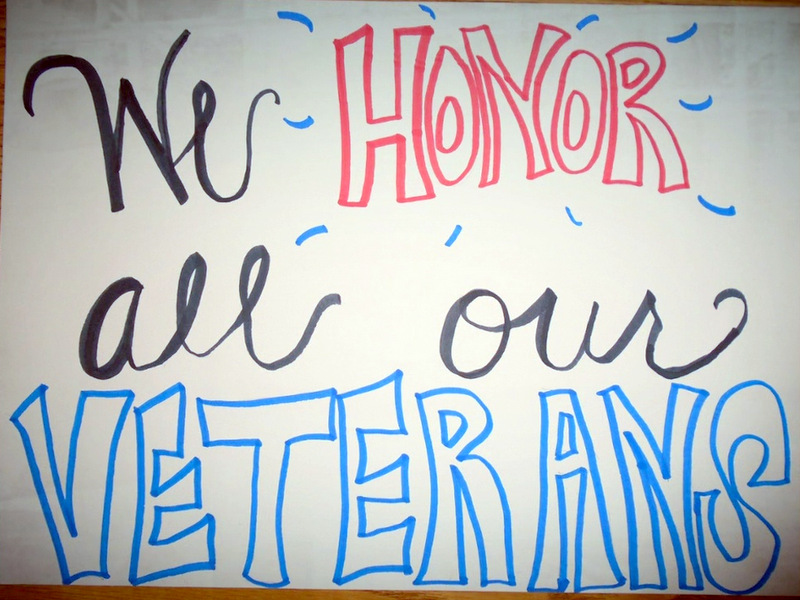 We HONOR
all our
VETERANS